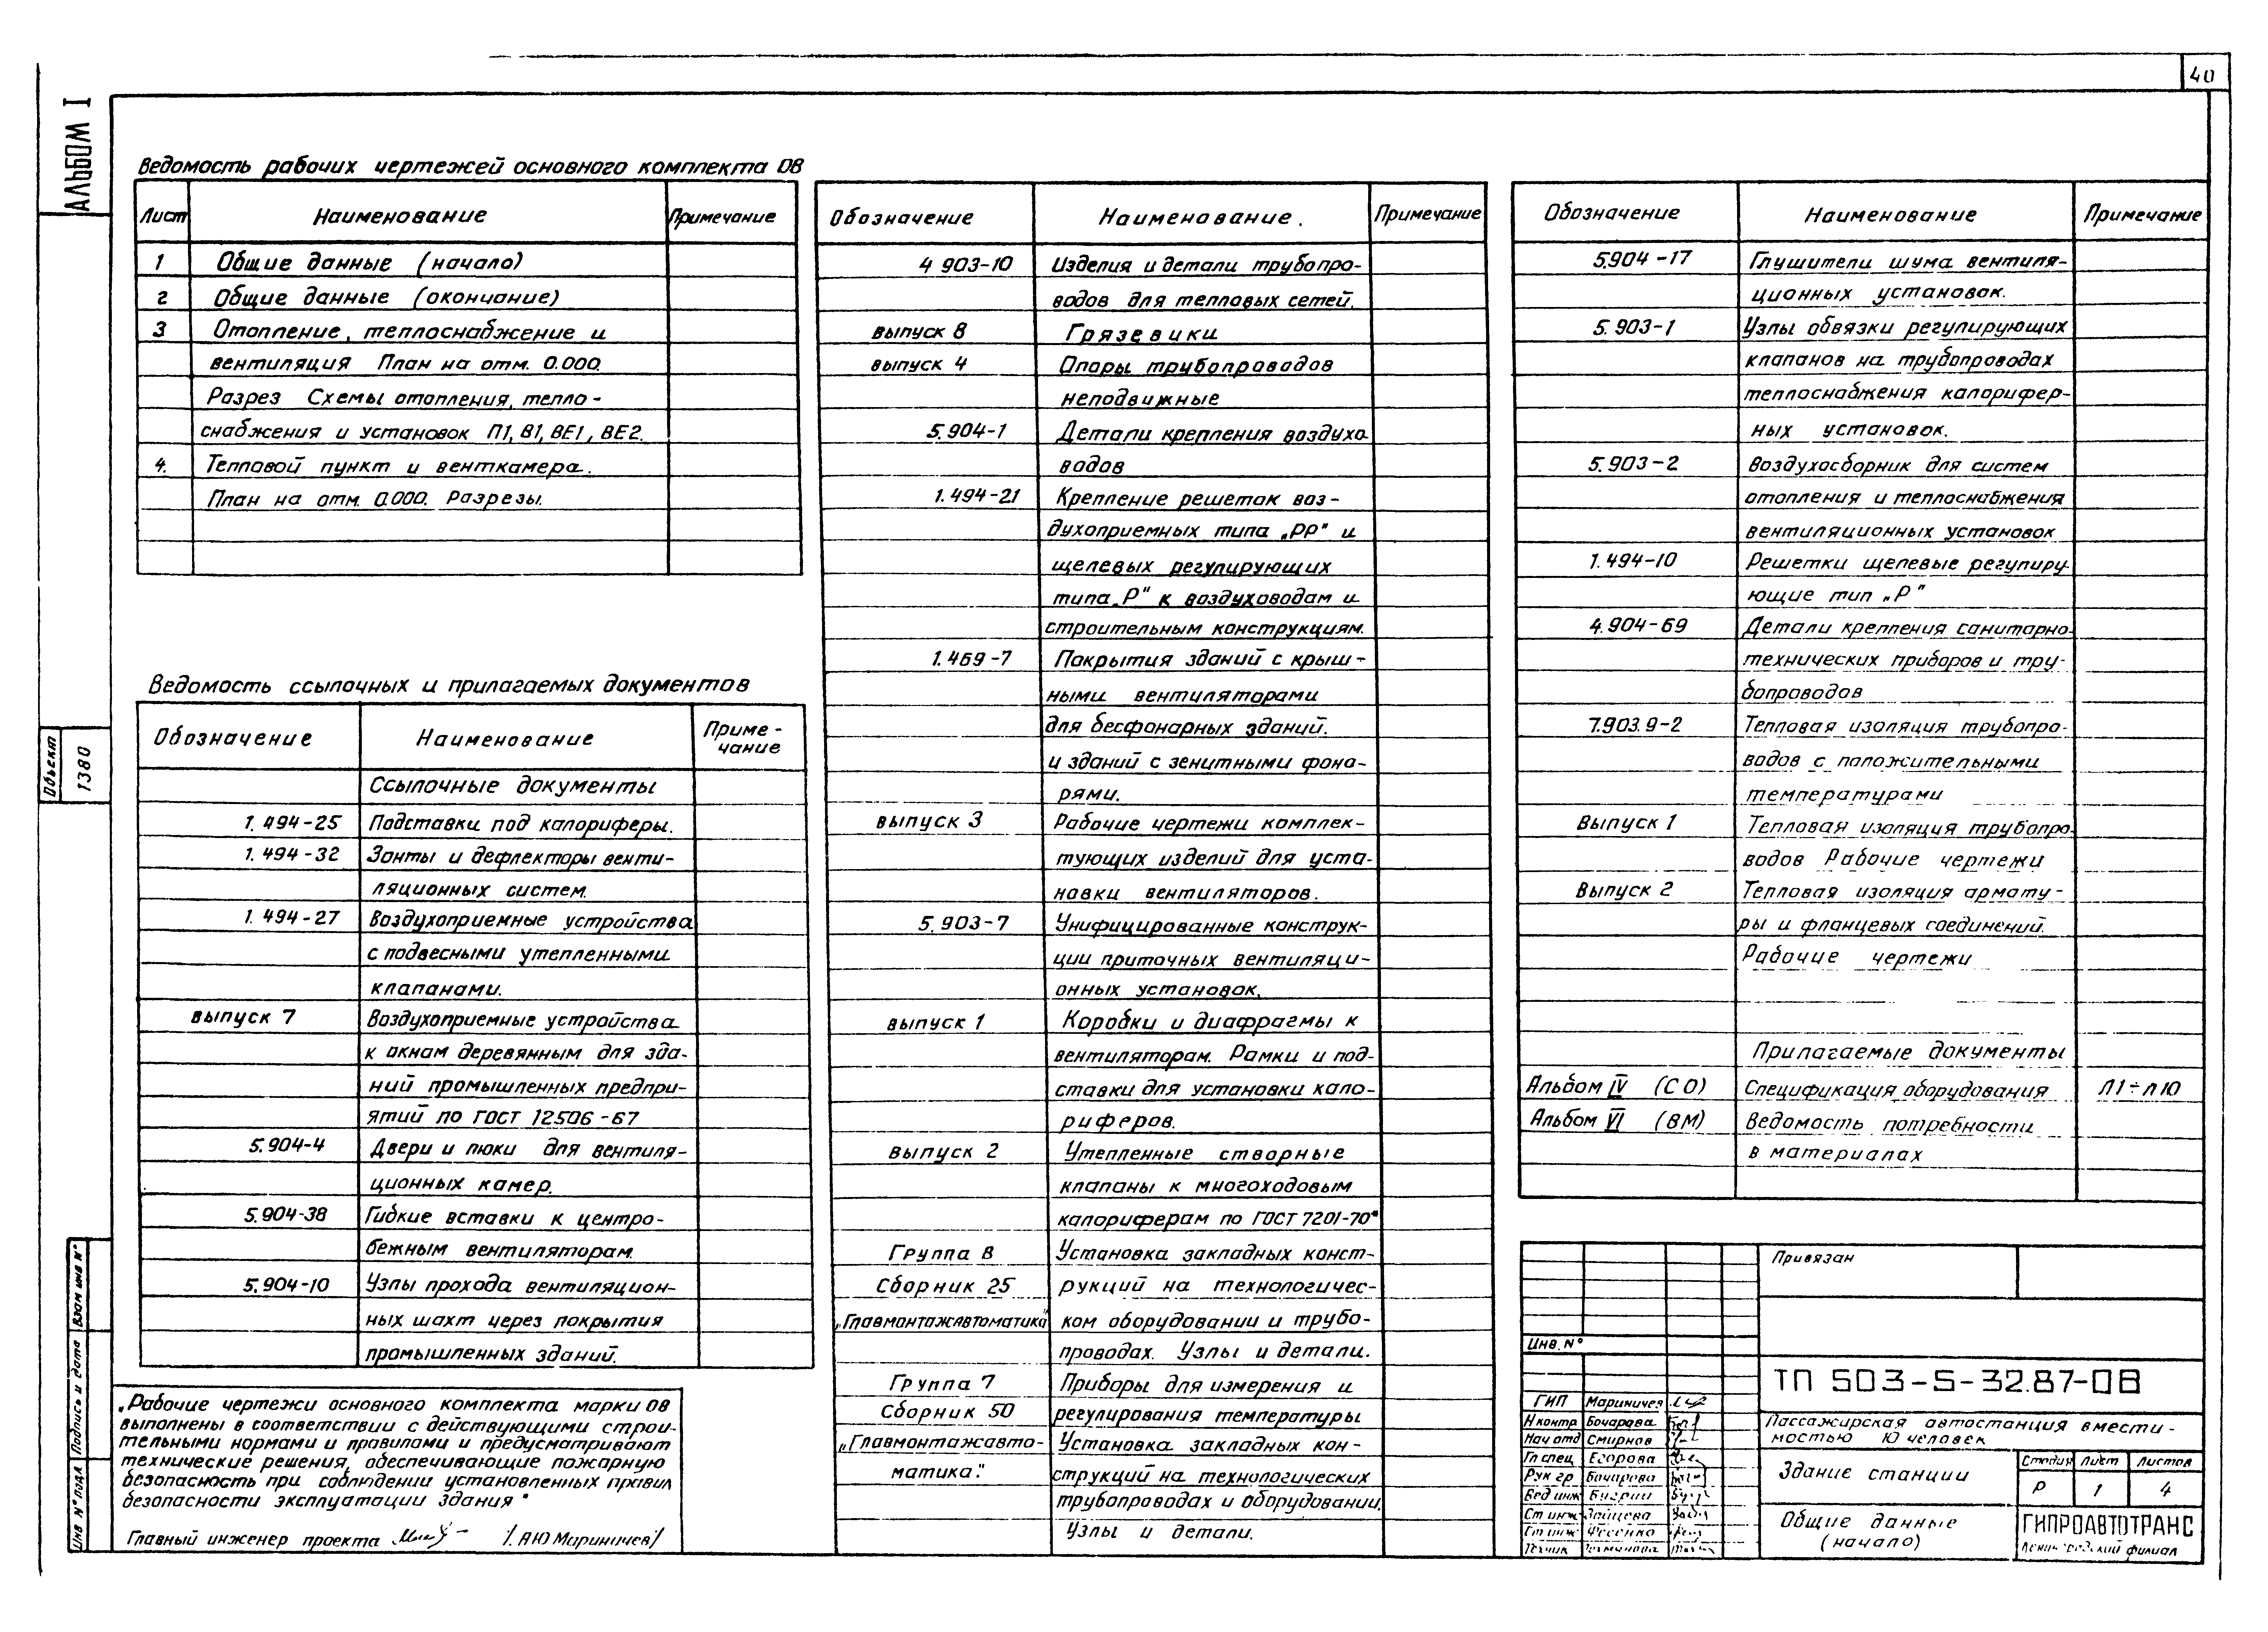 40
АЛЬБОМ I
Ведомость рабочих чертежей основного комплекта ОВ
Лист Наименование Примечание
1 Общие данные (начало)
2 Общие данные (окончание)
3 Отопление, теплоснабжение и
вентиляция План на отм. 0.000.
Разрез Схемы отопления, тепло-
снабжения и установок П1, В1, ВЕ1, ВЕ2.
4. Тепловой пункт и венткамера.
План на отм. 0.000. Разрезы.
Ведомость ссылочных и прилагаемых документов
Обозначение Наименование Приме-
чание
Ссылочные документы
1.494-25 Подставки под калориферы.
1.494-32 Зонты и дефлекторы венти-
ляционных систем.
1.494-27 Воздухоприемные устройства
с подвесными утепленными
клапанами.
выпуск 7 Воздухоприемные устройства
к окнам деревянным для зда-
ний промышленных предпри-
ятий по ГОСТ 12506-67
5.904-4 Двери и люки для вентиля-
ционных камер.
5.904-38 Гибкие вставки к центро-
бежным вентиляторам.
5.904-10 Узлы прохода вентиляцион-
ных шахт через покрытия
промышленных зданий.
„Рабочие чертежи основного комплекта марки ОВ
выполнены в соответствии с действующими строи-
тельными нормами и правилами и предусматривают
технические решения, обеспечивающие пожарную
безопасность при соблюдении установленных правил
безопасности эксплуатации здания"
Главный инженер проекта /А.Ю Мариничев/
Обозначение Наименование. Примечание
4 903-10 Изделия и детали трубопро-
водов для тепловых сетей.
выпуск 8 Грязевики
выпуск 4 Опоры трубопроводов
неподвижные
5.904-1 Детали крепления воздухо
водов
1.494-21 Крепление решеток воз-
духоприемных типа „РР" и
щелевых регулирующих
типа „Р" к воздуховодам и
строительным конструкциям.
1.469-7 Покрытия зданий с крыш-
ными вентиляторами
для бесфонарных зданий.
и зданий с зенитными фона-
рями.
выпуск 3 Рабочие чертежи комплек-
тующих изделий для уста-
новки вентиляторов.
5.903-7 Унифицированные конструк-
ции приточных вентиляци-
онных установок.
выпуск 1 Коробки и диафрагмы к
вентиляторам. Рамки и под-
ставки для установки кало-
риферов.
выпуск 2 Утепленные створные
клапаны к многоходовым
калориферам по ГОСТ 7201-70*
Группа 8 Установка закладных конст-
Сборник 25 рукций на технологичес-
„Главмонтажавтоматика" ком оборудовании и трубо-
проводах. Узлы и детали.
Группа 7 Приборы для измерения и
Сборник 50 регулирования температуры
„Главмонтажавто- Установка закладных кон-
матика". струкций на технологических
трубопроводах и оборудовании.
Узлы и детали.
Обозначение Наименование Примечание
5.904-17 Глушители шума вентиля-
ционных установок.
5.903-1 Узлы обвязки регулирующих
клапанов на трубопроводах
теплоснабжения калорифер-
ных установок.
5.903-2 Воздухосборник для систем
отопления и теплоснабжения
вентиляционных установок
1.494-10 Решетки щелевые регулиру-
ющие тип „Р"
4.904-69 Детали крепления санитарно-
технических приборов и тру-
бопроводов
7.903.9-2 Тепловая изоляция трубопро-
водов с положительными
температурами
Выпуск 1 Тепловая изоляция трубопро-
водов Рабочие чертежи
Выпуск 2 Тепловая изоляция армату-
ры и фланцевых соединений.
Рабочие чертежи
Прилагаемые документы
Альбом IV (СО) Спецификация оборудования Л1÷Л10
Альбом VI (ВМ) Ведомость потребности
в материалах
Привязан
Инв. №
ТП 503-5-32.87-ОВ
ГИП Мариничев
Н контр Бочарова
Нач отд Смирнов
Гл спец Егорова
Рук гр Бочарова
Вед инж
Ст инж Зайцева
Ст инж Фесенко
Техник
Пассажирская автостанция вмести-
мостью 10 человек
Здание станции
Стадия Лист Листов
Р 1 4
Общие данные
(начало)
ГИПРОАВТОТРАНС
Ленинградский филиал
Объект
1380
Взам инв №
Подпись и дата
Инв № подл